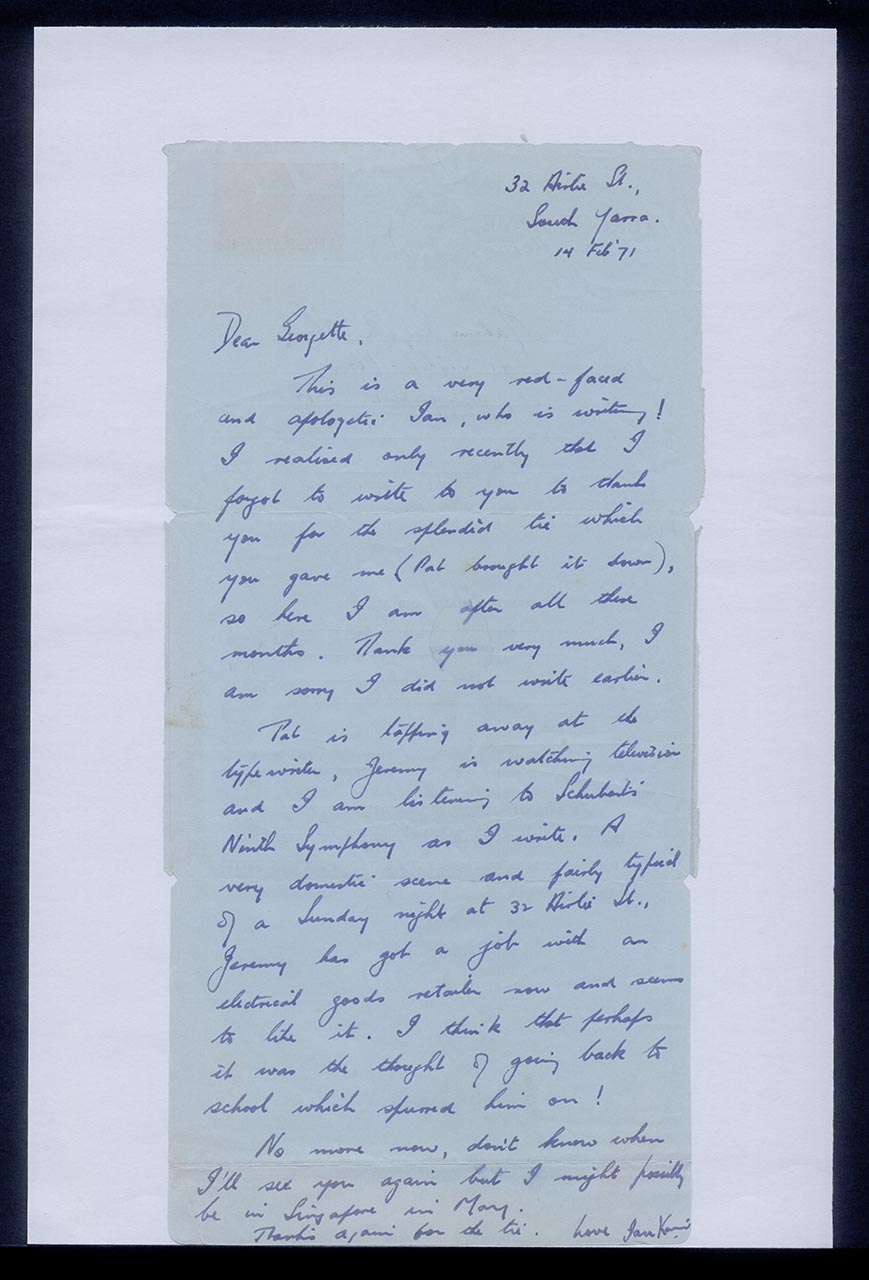 32 Airlie St.,
South Yarra.
14 Feb '71
Dear Georgette,
This is a very red-faced
and apologetic Ian, who is writing!
I realised only recently that I
forgot to write to you to thank
you for the splendid tie which
you gave me (Pat brought it down),
so here I am after all these
months. Thank you very much, I
am sorry I did not write earlier.
Pat is tapping away at the
typewriter, Jeremy is watching television
and I am listening to Schubert's
Ninth Symphony as I write. A
very domestic scene and fairly typical
of a Sunday night at 32 Airlie St.,
Jeremy has got a job with an
electrical goods retailer now and seems
to like it. I think that perhaps
it was the thought of going back to
school which spurred him on!
No more now, don't know when
I'll see you again but I might possibly
be in Singapore in May.
Thanks again for the tie. Love Ian